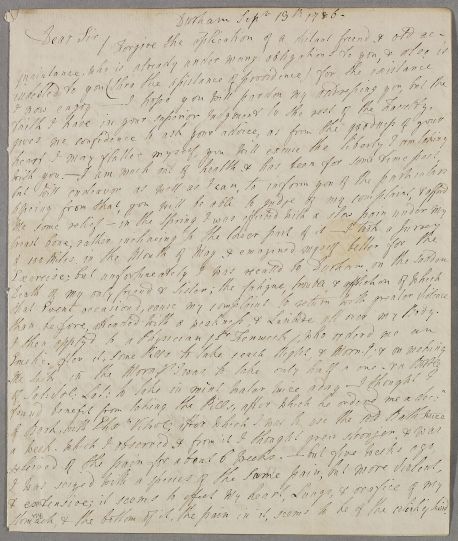 Durham Sepr 13th 1786.
Dear Sir / Forgive the aplication of a distant friend & old ac-
quaintance, who is already under many obligations to you, & also is
indebted to you (then the assistance of providence) for the existance
I now enjoy — I hope you will pardon my addressing you, but the
faith I have in your superior judgment to the rest of the faculty,
gives me confidence to ask your advice, as from the goodness of your
heart I may flatter myself you will excuse the liberty I am taking
with you — I am much out of health & has been for some time past,
but will endeavor as well as I can, to inform you of the particulars
from that, you will be able to judge of my complaint, & afford
me some relief — in the spring I was afflicted with a slow pain under my
breast bone, rather inclining to the lower part of it — I took a jurney
in the Month of May, & emagined myself better for the
Exercise; but unfortunately I was recal'd to Durham, on the sudden
Death of my only friend & Sister; the fatigue, & affliction of which
that Event occasion'd, cause my complaint to return with greater violence
than before, attended with a weakness & Lasitude all over my Body.
I then applyed to a Physician Dr Fenwick, who ordered me an
Emetic; after it, some Pills to take, each Night & Morng; & on
the in the Morng; I was to take only half a one — a Bottle
of to take in mint water twice a day — I thought I
found benefit from taking the Pills, after which he ordered me a dec:n
of Bark, with after which I was to use the Bath twice
a week. Which I observed, & from it I thought grew stronger & was
relieved of the pain for about 6 weeks. — but five weeks ago
I was seized with a species of the same pain, but more violent,
& extensive; it seems to afect my heart, Lungs, & orifice of my
stomach, & the bottom of it, the pain in it, seems to be of the